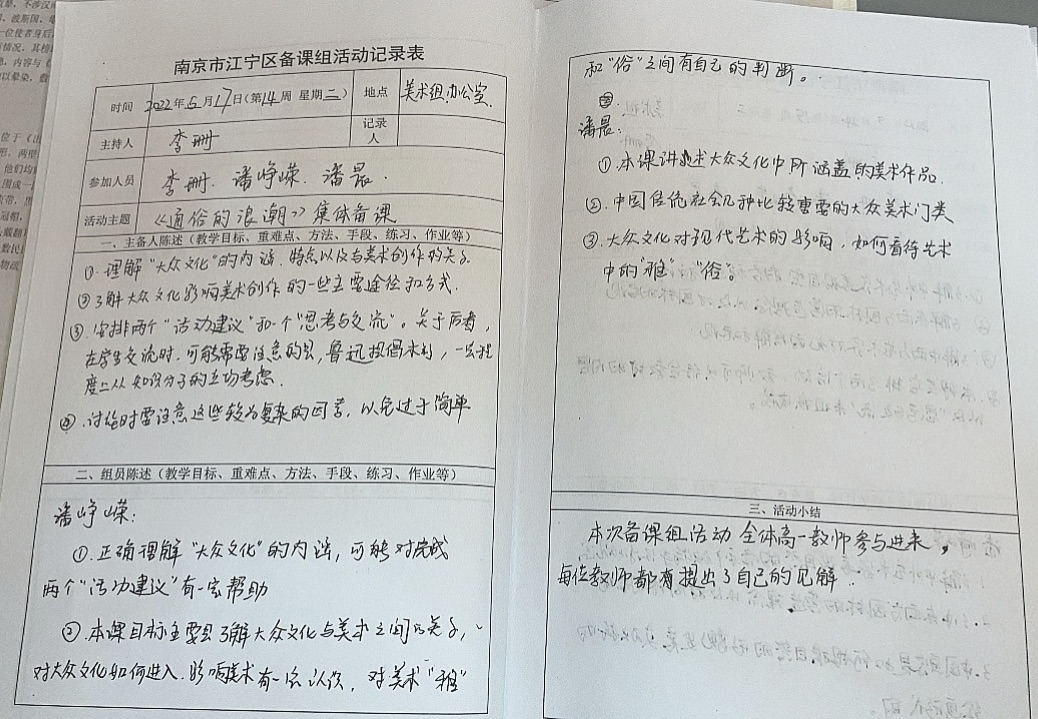 南京市江宁区备课组活动记录表
时间 2022年5月17日(第14周 星期二) 地点 美术组办公室.
主持人 李珊 记录人
参加人员 李珊. 潘峥嵘. 潘晨.
活动主题 《通俗的浪潮》集体备课
一、主备人陈述(教学目标、重难点、方法、手段、练习、作业等)
①.理解"大众文化"的内涵.特点以及与美术创作的关系.
②了解大众文化影响美术创作的一些主要途径和方式.
③安排两个"活动建议"和一个"思考与交流"。关于后者,
在学生交流时.可能需要注意的是,鲁迅提倡木刻,一定程
度上从知识分子的立场考虑.
④.讨论时要注意这些较为复杂的因素,以免过于简单
二、组员陈述(教学目标、重难点、方法、手段、练习、作业等)
潘峥嵘:
①.正确理解"大众文化"的内涵,可能对完成
两个"活动建议"有一定帮助
②.本课目标主要是了解大众文化与美术之间的关系,
对大众文化如何进入.影响美术有一定认识,对美术"雅"
和"俗"之间有自己的判断。
潘晨:
①.本课讲述大众文化中所涵盖的美术作品.
②.中国传统社会几种比较重要的大众美术门类
③.大众文化对现代艺术的影响,如何看待艺术
中的"雅"、"俗"。
三、活动小结
本次备课组活动 全体高一教师参与进来,
每位教师都有提出了自己的见解.